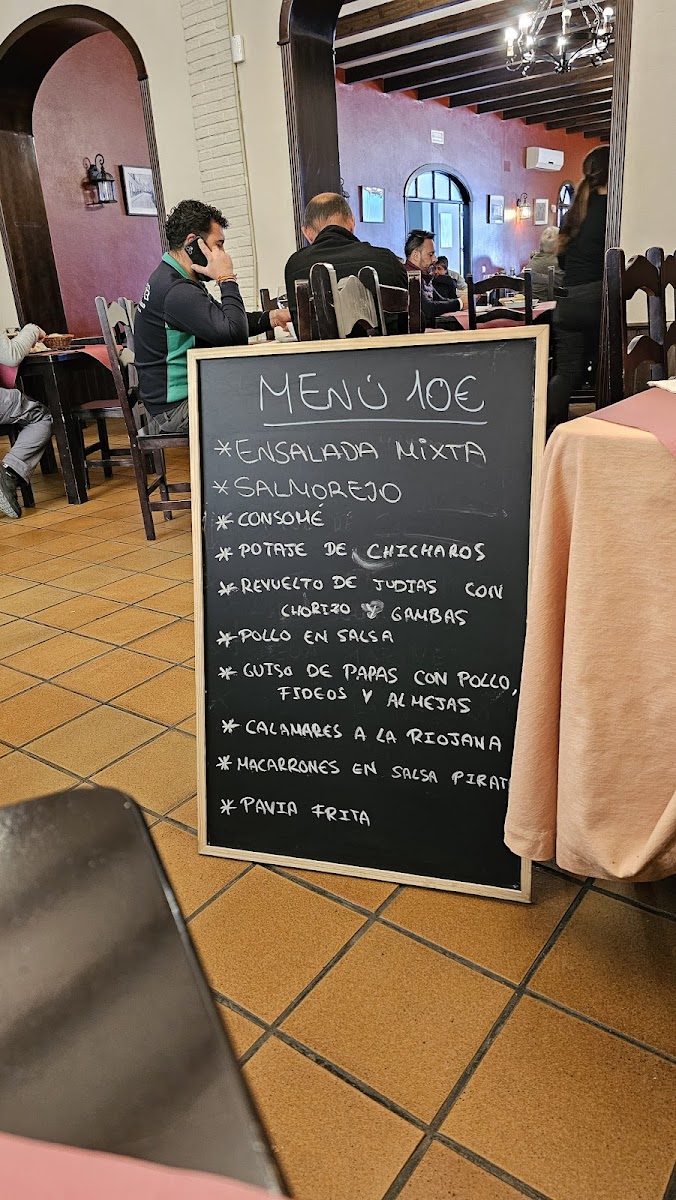 MENÚ 10€
* ENSALADA MIXTA
* SALMOREJO
* CONSOMÉ
* POTAJE DE CHICHAROS
* REVUELTO DE JUDIAS CON
CHORIZO Y GAMBAS
* POLLO EN SALSA
* GUISO DE PAPAS CON POLLO,
FIDEOS Y ALMEJAS
* CALAMARES A LA RIOJANA
* MACARRONES EN SALSA PIRAT
* PAVIA FRITA